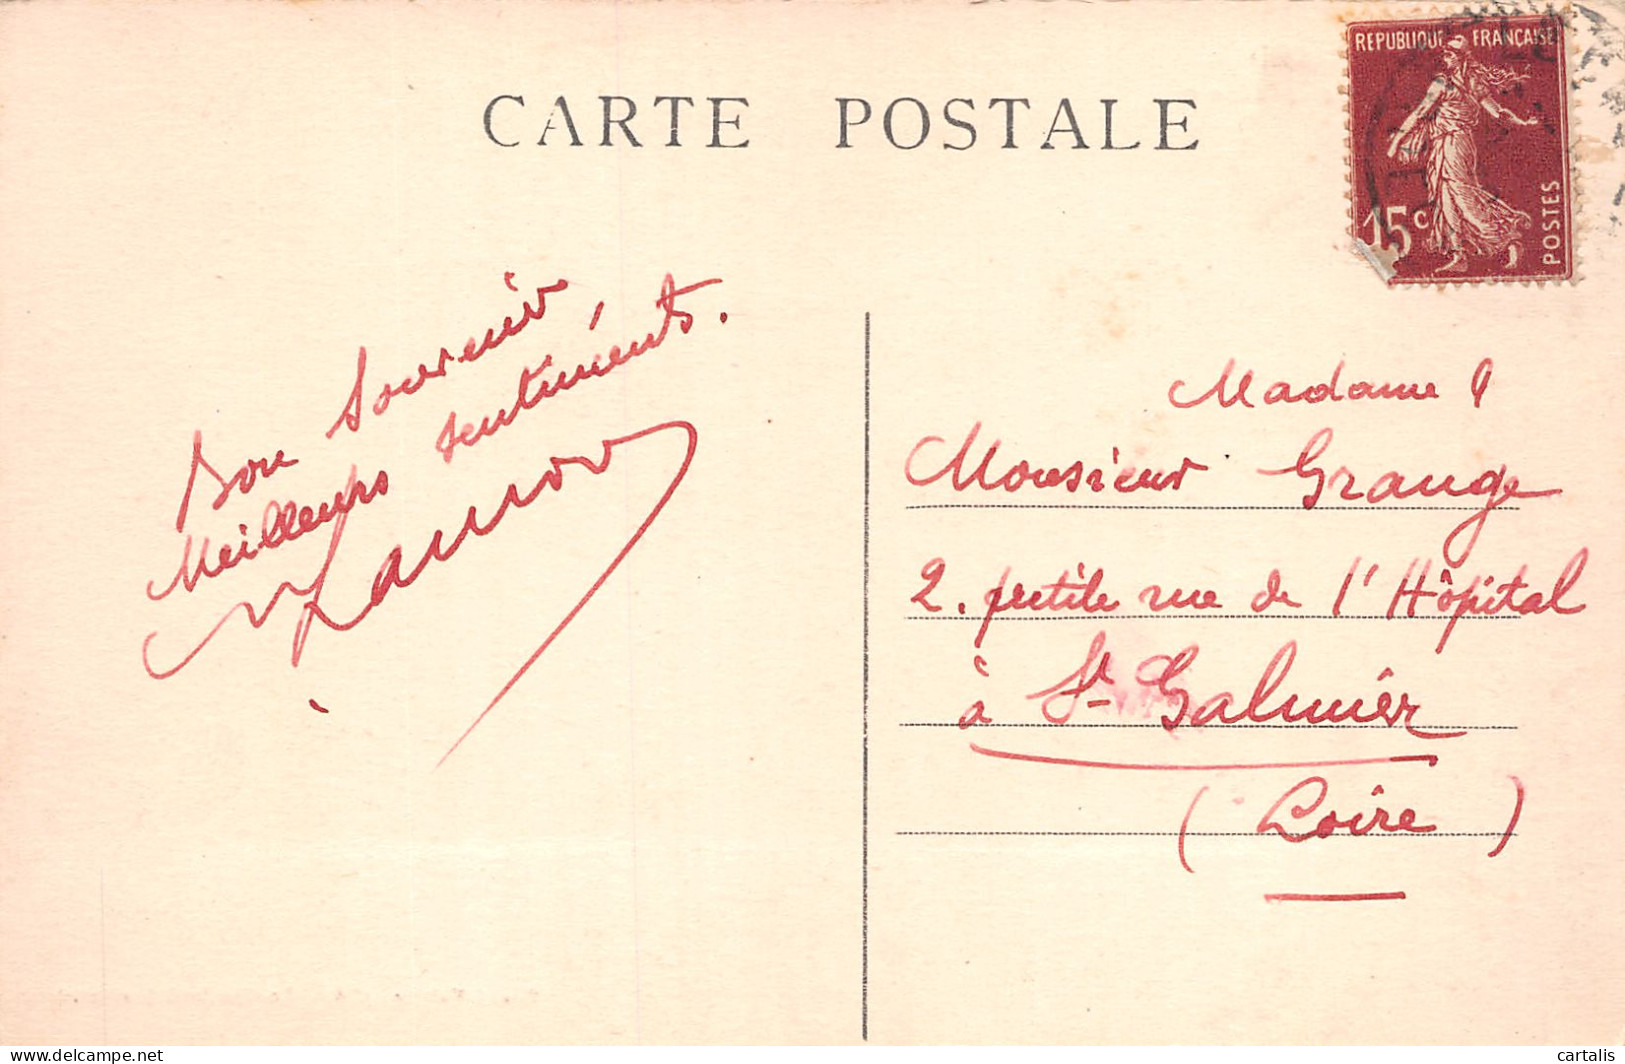 CARTE POSTALE
REPUBLIQUE FRANÇAISE
15c
POSTES
Bon Souvenir
Meilleurs sentiments.
Madame &
Monsieur Grange
2. petite rue de l'Hôpital
à St Galmier
(Loire)
delcampe.net
cartalis